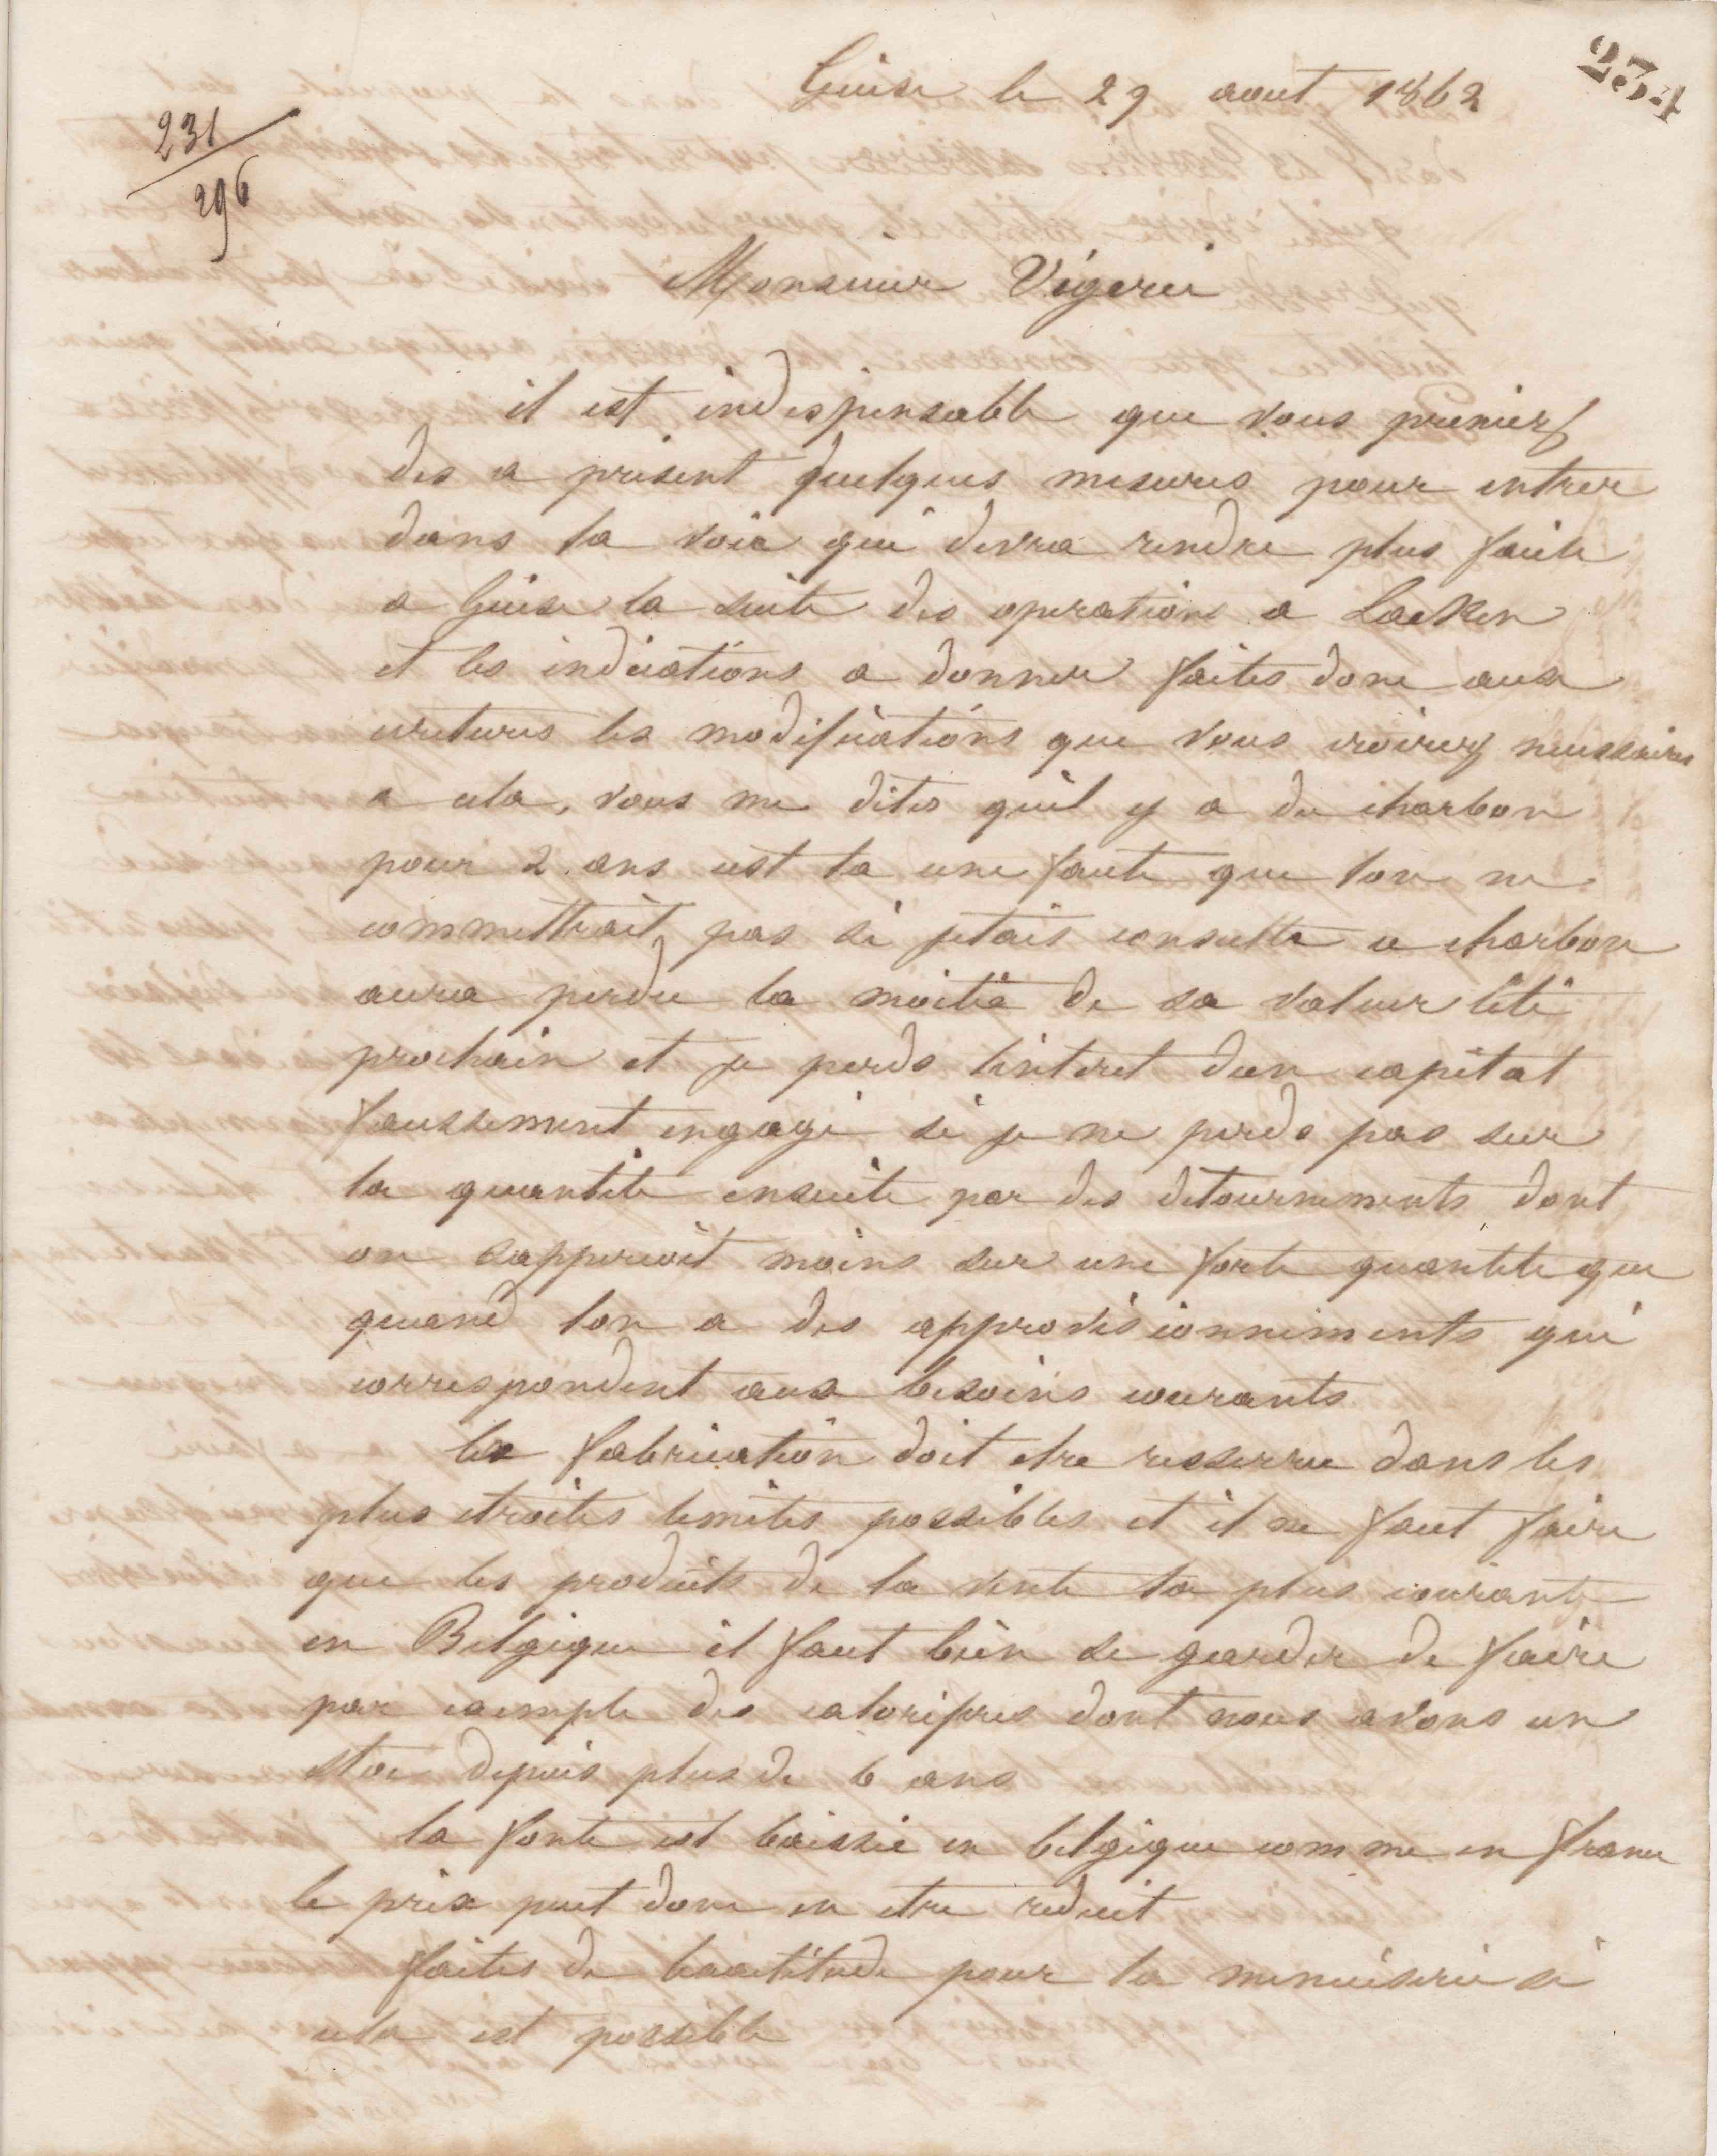 Guise le 29 aout 1862
234
231
296
Monsieur Vigerie
il est indispensable que vous preniez
des a present quelques mesures pour entrer
dans la voie qui devra rendre plus facile
a Guise la suite des operations a Laeken
et les indications a donner faites donc aux
ecritures les modifications que vous croirez necessaires
a cela, vous me dites quil y a du charbon
pour 2 ans cest la une faute que lon ne
commettrait pas si jetais consulte ce charbon
aura perdu la moitie de sa valeur lété
prochain et je perds linteret dun capital
faussement engagé si je ne perds pas sur
la quantite ensuite par des detournements dont
on sapperçoit moins sur une forte quantite que
quand lon a des approvisionnements qui
correspondent aux besoins courants
la fabrication doit etre resserree dans les
plus etroites limites possibles et il ne faut faire
que les produits de la vente la plus courante
en Belgique il faut bien se garder de faire
par exemple des caloriferes dont nous avons un
stoc depuis plus de 6 ans
la fonte est baissée en belgique comme en france
le prix peut donc en etre reduit
faites de lexactitude pour la menuiserie si
cela est possible